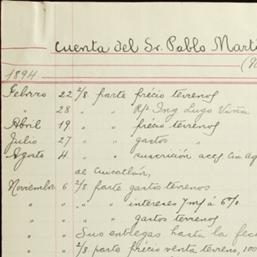 Cuenta del Sr. Pablo Marti
1894.
Febrero 22 2/8 parte précio terrenos
" 28 " " Rfo Ing Lugo Viña
Abril 19 " " précio terrenos
Julio 27 " " gastos "
Agosto 4 " " suscrición Cia
de
Noviembre 6 2/8 parte gastos terrenos
" " " intereses 7 m/ á 6%
" " " gastos terrenos
" " Sus entregas hasta la fec
" " 2/8 parte précio venta terreno, 100